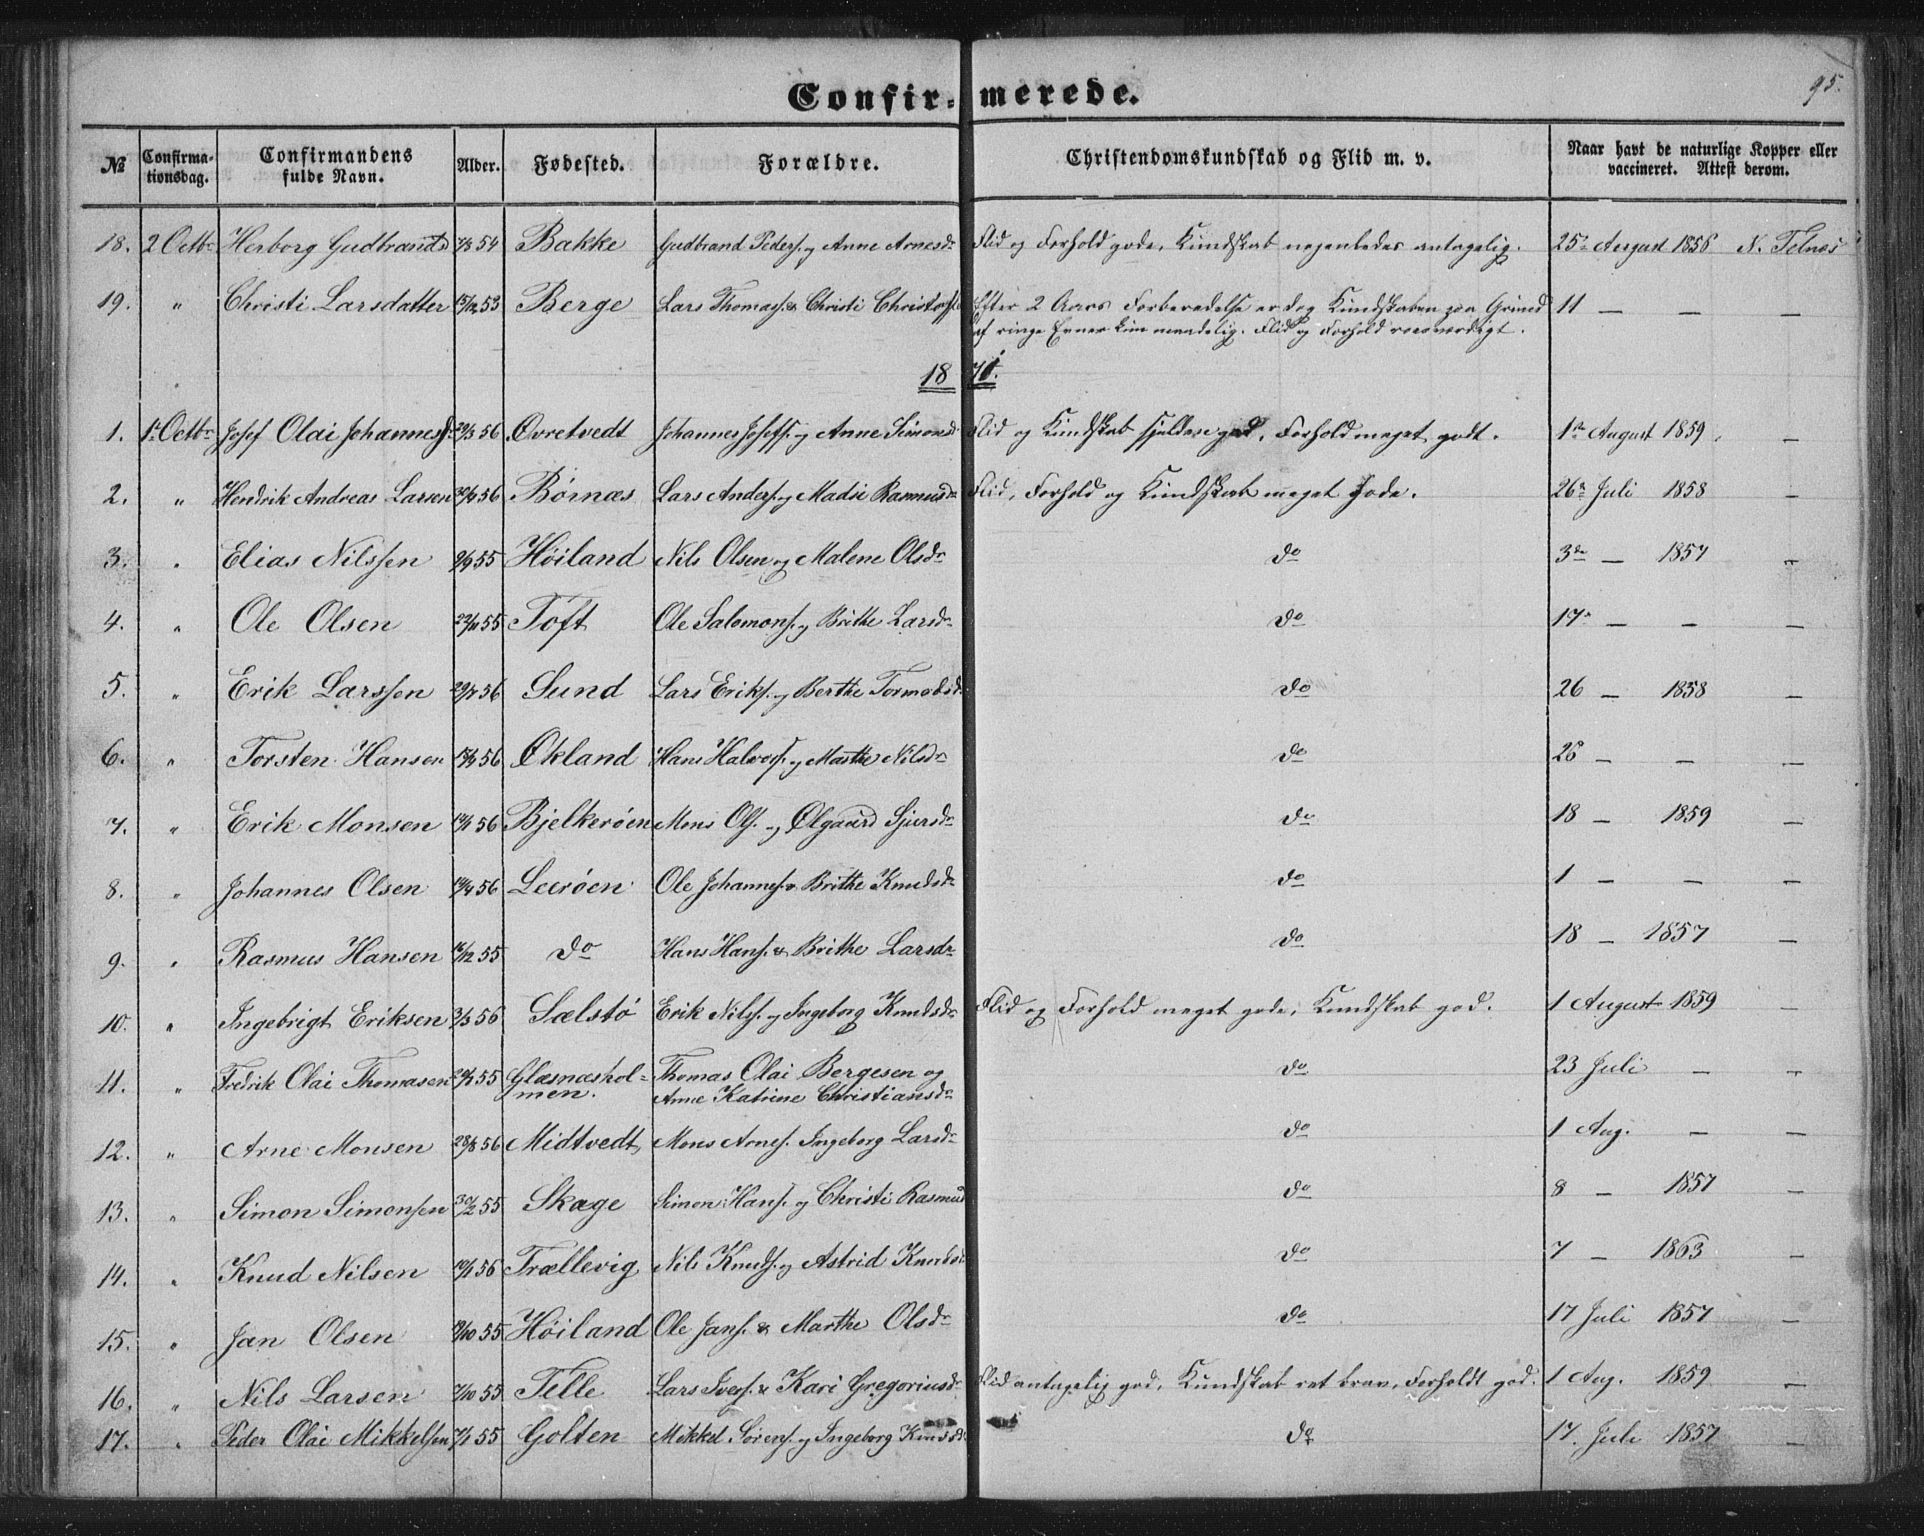 95.
Confir- merede.
№ Confirma-tionsdag. Confirmandens fulde Navn. Alder. Fødested. Forældre. Christendomskundskab og Flid m. v. Naar havt de naturlige Kopper eller vaccineret. Attest derom.
18. 2 Octbr Herborg Gudbrands 54 Bakke Gudbrand Peders. og Anne Arnesdr Flid og Forhold gode, Kundskab nogenledes antagelig. 25de August 1856 N. Telnes
19. " Christi Larsdatter 13/12 53 Berge Lars Thomass. & Christi Efter 2 Aars Forberedelse er dog Kundskaben paa Grund 11 — — —
af ringe Evner kun maadelig. Flid og Forhold roesværdigt.
18 71.
1. 1ste Octbr Josef Olai Johanness. 56 Øvretvedt Johannes Josefs. og Anne Simonsd Flid og Kundskab sjelden god, Forhold meget godt. 1ste August 1859. —
2. " Hendrik Andreas Larsen 56 Børnæs Lars Anders. og Madsi Rasmusdr Flid, Forhold og Kundskab meget gode. 26de Juli 1858 —
3. " Elias Nilssen 9/9 55 Høiland Nils Olsen og Malene Olsdr do 3de — 1857 —
4. " Ole Olsen 22/11 55 Toft Ole Salomons. og Brithe Larsdr do 17de — — —
5. " Erik Larssen 56 Sund Lars Eriks. og Berthe Tormodsd do 26 — 1858 —
6. " Torsten Hansen 56 Økland Hans Halvors. og Marthe Nilsdr do 26 — — —
7. " Erik Monsen 56 Bjelkerøen Mons Ols. og Ølgaard Sjursdr do 18 — 1859 —
8. " Johannes Olsen 56 Leerøen Ole Johanness. & Brithe Knudsdr do 1 — — —
9. " Rasmus Hansen 16/12 55 do Hans Hans. & Brithe Larsdr do 18 — 1857 —
10. " Ingebrigt Eriksen 3/3 56 Sælstø Erik Nilss. og Ingeborg Knudsdr Flid og Forhold meget gode, Kundskab god. 1 August 1859 —
11. " Fredrik Olai Thomasen 55 Glæsnæshol- Thomas Olai Bergesen og do 23 Juli — —
men. Anne Katrine Christiansdr
12. " Arne Monsen 28/8 56 Midtvedt Mons Arnes. Ingeborg Larsdr do 1 Aug. — —
13. " Simon Simonsen 55 Skage Simon Hans. og Christi Rasmus do 8 — 1857 —
14. " Knud Nilsen 56 Trællevig Nils Knuds. og Astrid Knudsd do 7 — 1863 —
15. " Jan Olsen 55 Høiland Ole Jans. & Marthe Olsdr do 17 Juli 1857 —
16. " Nils Larsen 7/10 55 Telle Lars Ivers. & Kari Gregoriusd Flid antagelig god, Kundskab ret brav, Forholdt god. 1 Aug. 1859 —
17. " Peder Olai Mikkelsen 55 Golten Mikkel Sørens. og Ingeborg Knudsd do 17. Juli 1857 —